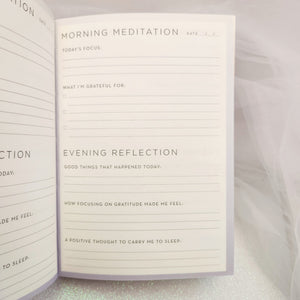 TION
MORNING MEDITATION
DATE / /
TODAY'S FOCUS:
WHAT I'M GRATEFUL FOR:
CTION
TODAY:
ME FEEL:
TO SLEEP:
EVENING REFLECTION
GOOD THINGS THAT HAPPENED TODAY:
HOW FOCUSING ON GRATITUDE MADE ME FEEL:
A POSITIVE THOUGHT TO CARRY ME TO SLEEP: